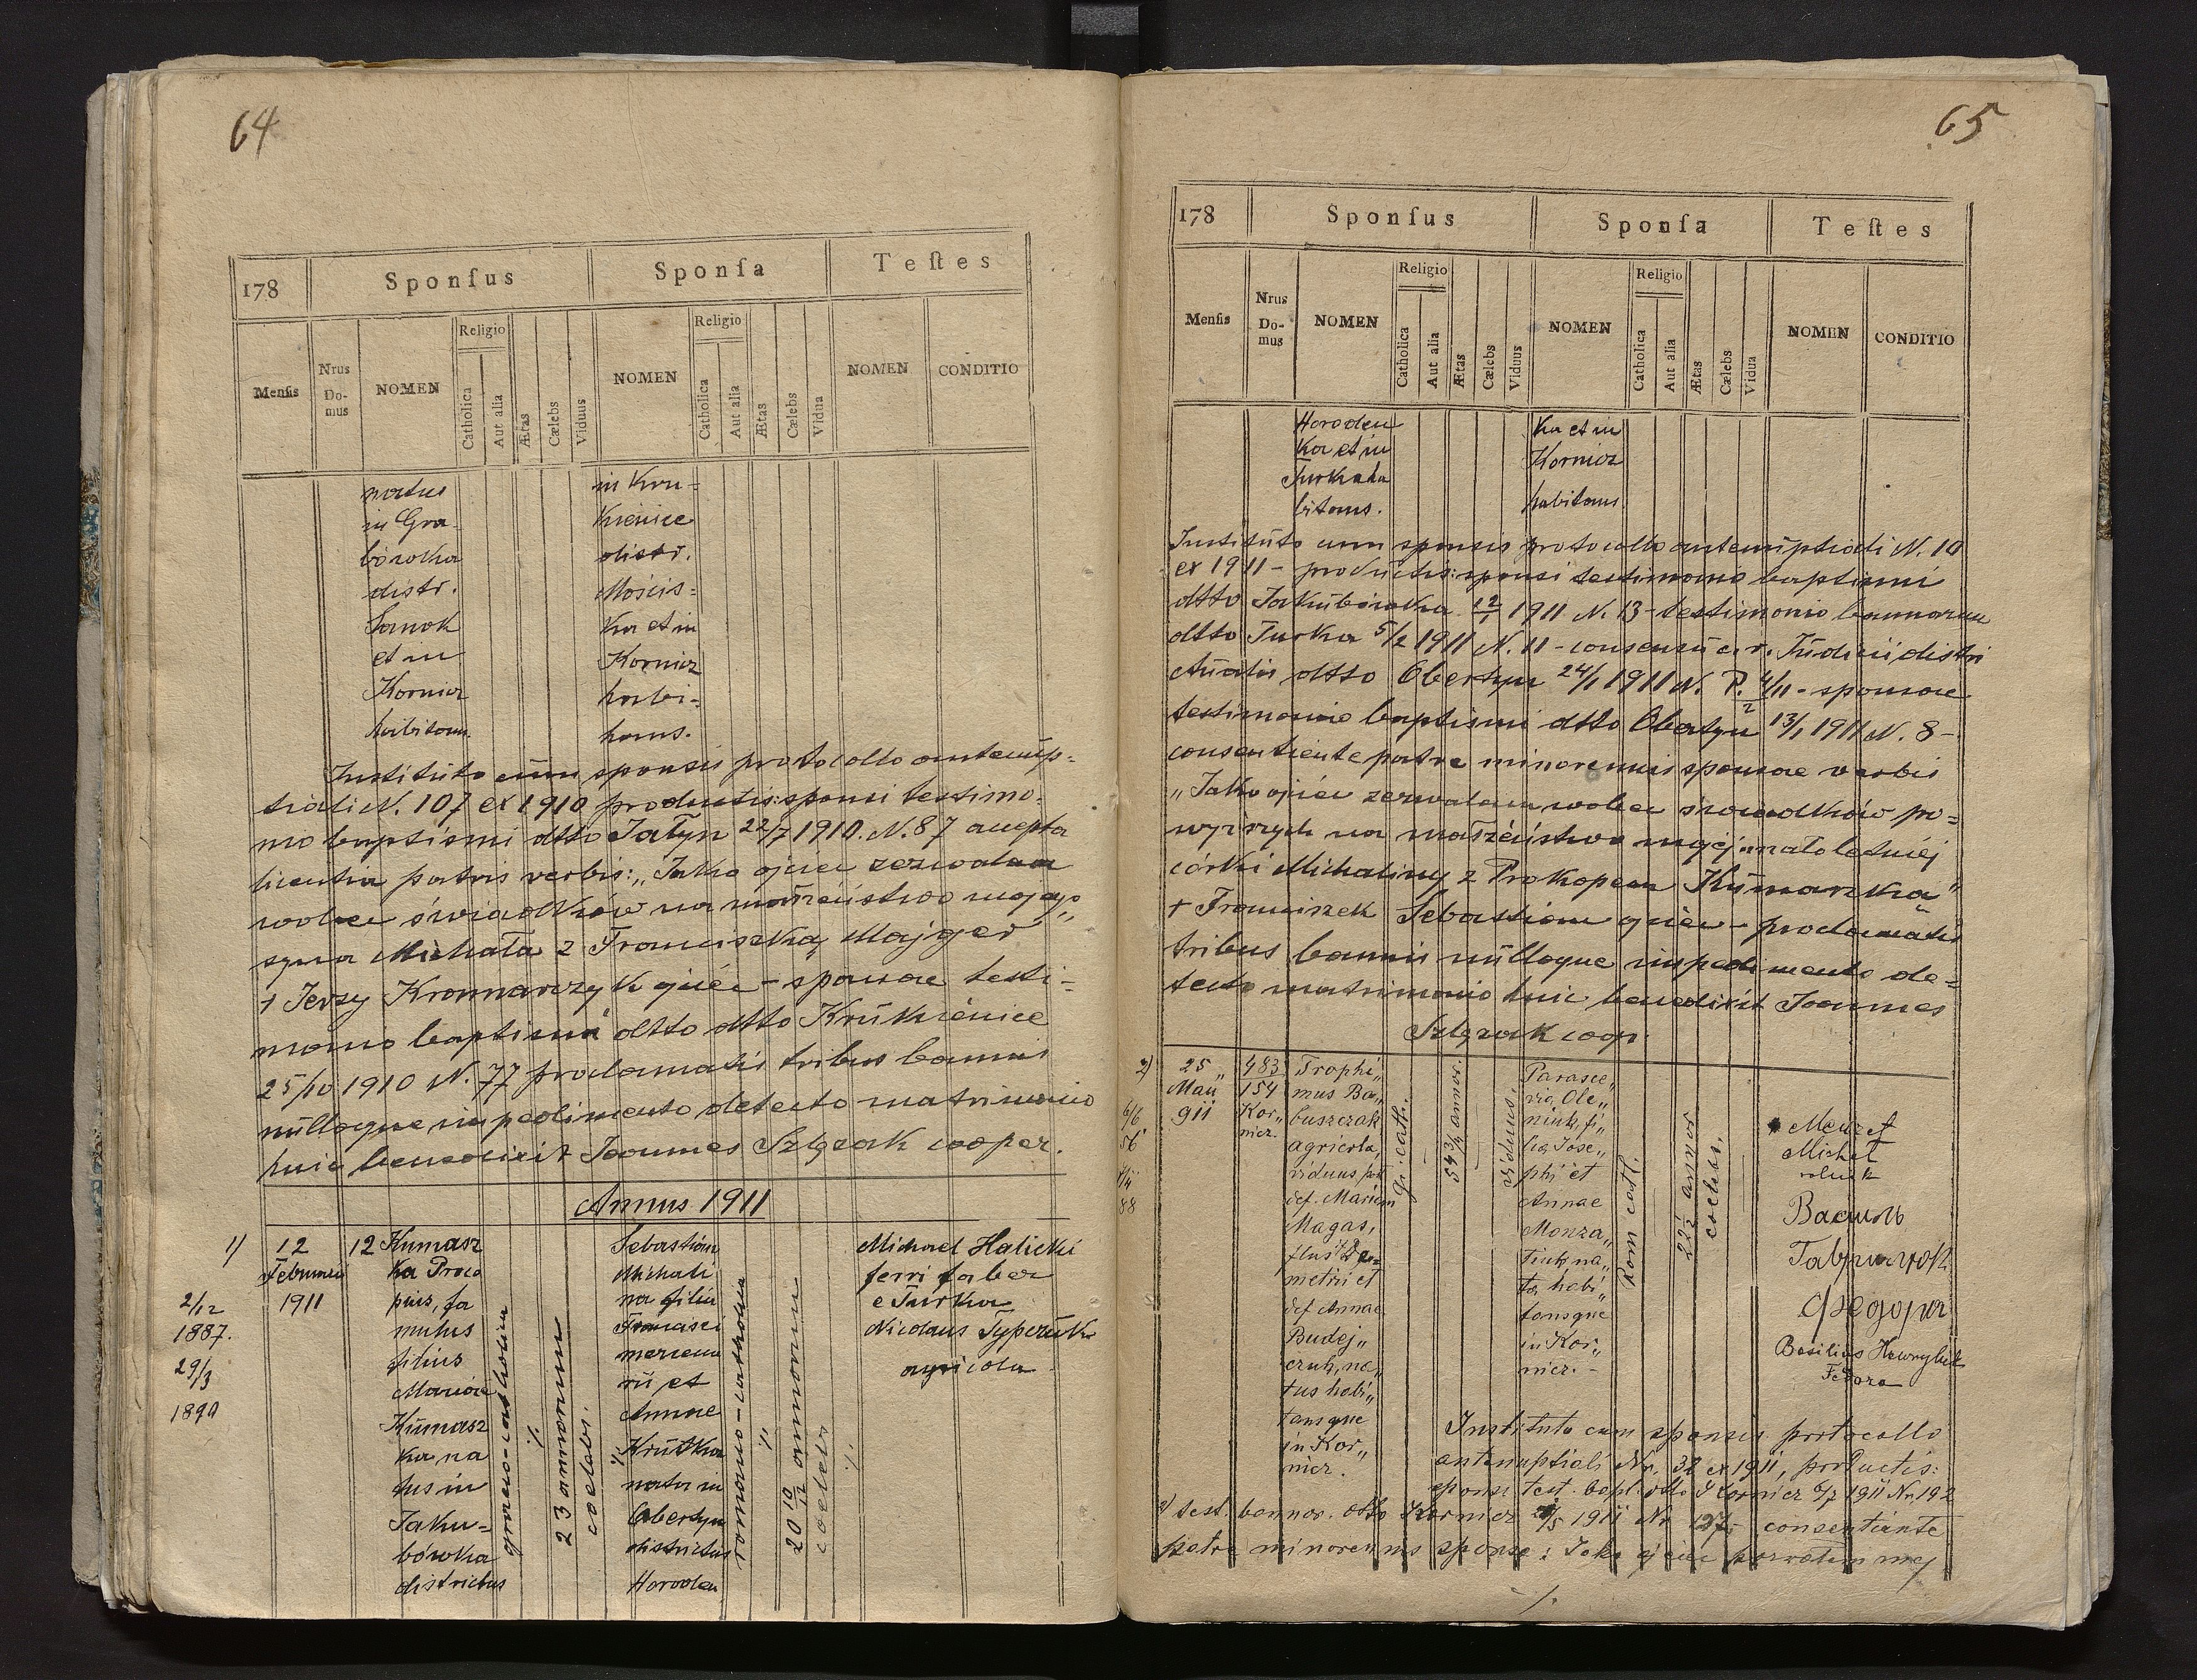 64
178
Sponſus
Sponſa
Teſtes
Menſis
Nrus Domus
NOMEN
Religio
Catholica
Aut alia
Ætas
Cælebs
Viduus
NOMEN
Religio
Catholica
Aut alia
Ætas
Cælebs
Vidua
NOMEN
CONDITIO
natus
in Gra-
bówka
distr.
Sanok
et in
Kornicz
habitans
in Kru-
kienice
distr.
Mościs-
ka et in
Kornicz
habi-
tans.
Instituto cum sponsis protocollo antenup-
tiali N. 107 ex 1910 productis: sponsi testimo-
nio baptismi dtto Jałyn 22/7 1910. N. 87 accepta
licentia patris verbis: „Jako ojciec zezwalam
wobec świadków na małżeństwo mojego
syna Michała z Franciszką Majger"
† Jerzy Kromarzyk ojciec - sponsae testi-
monio baptismi dtto dtto Krukienice
25/10 1910 N. 77 proclamatis tribus bannis
nulloque impedimento detecto matrimonio
huic benedixit Joannes Szlęzak cooper.
Annus 1911
1)
12
Februarii
1911
2/12
1887.
29/3
1890
12
Kumasz
ka Proco
pius, fa
mulus
filius
Mariae
Kumasz
ka na
tus in
Jaku-
bówka
districtus
graeco-catholica
23 annorum
coelebs.
Sebastian
Michali
na filia
Francisci
mercena
rii et
Annae
Krutka
nata in
Obertyn
districtus
Horoden
romano-catholica
20 10/12 annorum
coelebs
Michael Halicki
ferri faber
e Turka
Nicolaus Typczuk
agricola
65
178
Sponſus
Sponſa
Teſtes
Menſis
Nrus Domus
NOMEN
Religio
Catholica
Aut alia
Ætas
Cælebs
Viduus
NOMEN
Religio
Catholica
Aut alia
Ætas
Cælebs
Vidua
NOMEN
CONDITIO
Horoden
ka et in
Turka ha
bitans.
ka et in
Kornicz
habitans
Instituto cum sponsis protocollo antenuptiali N. 10
ex 1911 - productis: sponsi testimonio baptismi
dtto Jakubówka 12/1 1911 N. 13 - testimonio bannorum
dtto Turka 5/2 1911 N. 11 - consensu c. r. Judicii distri
ctualis dtto Obertyn 24/1 1911 N. P. 4/11 - sponsae
testimonio baptismi dtto Obertyn 13/1 1911 N. 8 -
consentiente patre minorennis sponsae verbis
„Jako ojciec zezwalam wobec świadków po-
wyższych na małżeństwo mojej małoletniej
córki Michaliny z Prokopem Kumaszką"
† Franciszek Sebastian ojciec - proclamatis
tribus bannis nulloque impedimento de-
tecto matrimonio huic benedixit Joannes
Szlęzak coop.
2)
25
Maii
911
6/6
56
88
483
154
Kor„
nicz.
Trophi„
mus Ba„
buszczak
agricola,
viduus post
def. Mariam
Magas,
filius De„
metrii et
def Annae
Budej„
czuk, na„
tus habi„
tansque
in Kor„
nicz.
gr. cath.
54 3/4 annor.
viduus.
Parasce„
via Ole„
niuk, fi„
lia Jose„
phi et
Annae
Monza„
tiuk na„
ta, habi„
tansque
in Kor„
nicz. -
Rom cath.
22 1/2 annor
coelebs.
Michał
rolnik
Василь
Гаврилюк
Федора
Basilius Hawryluk
Fedora
Instituto cum sponsis protocollo
antenuptiali Nr. 32 ex 1911, productis:
sponsi test. bapt. dtto Kornicz 1911 Nr. 192
test. bannor. dtto Kornicz 1911 Nr 127, consentiente
patre minorennis sponsae: Jako ojciec pozwalam mej
./.